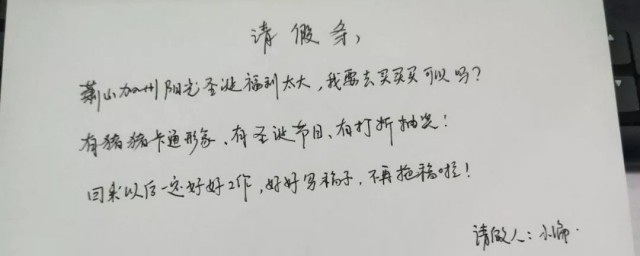 请假条，
萧山加州阳光圣诞福利太大，我要去买买买可以吗？
有猪猪卡通形象、有圣诞节目、有打折抽奖！
回来以后一定好好工作，好好写稿子，不再拖稿啦！
请假人：小编.